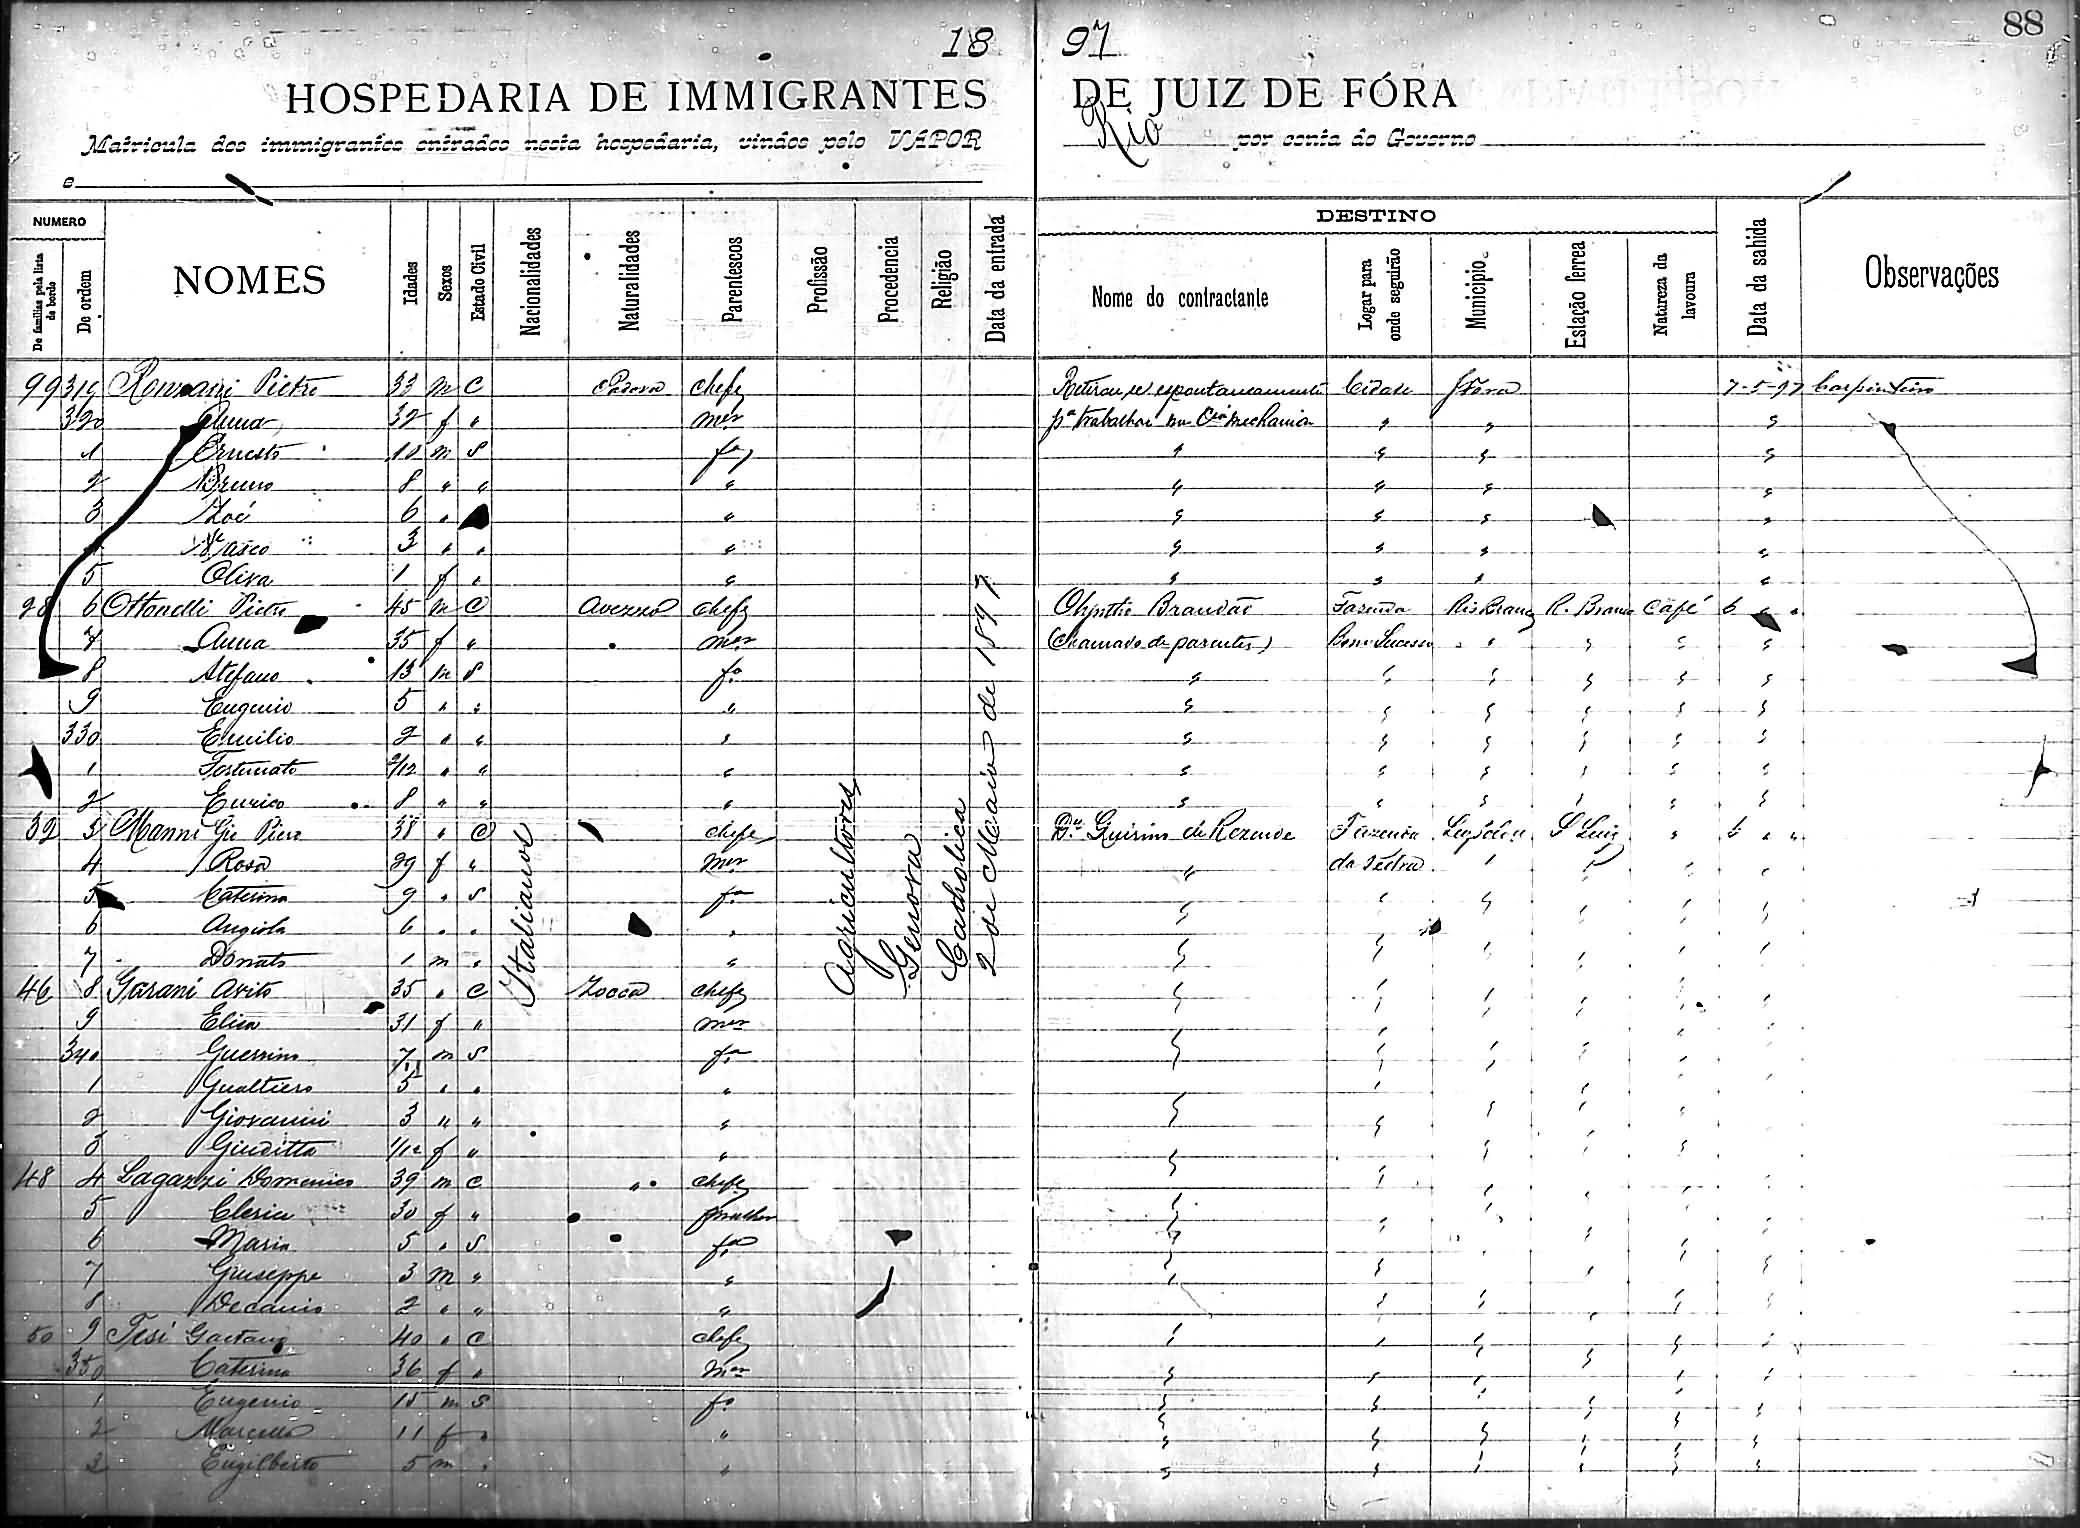 1897 88
HOSPEDARIA DE IMMIGRANTES DE JUIZ DE FÓRA
Matricula dos immigrantes entrados nesta hospedaria, vindos pelo VAPOR Rio por conta do Governo
e
NUMERO
De familias pela lista de bordo
De ordem
NOMES
Idades
Sexos
Estado Civil
Nacionalidades
Naturalidades
Parentescos
Profissão
Procedencia
Religião
Data da entrada
DESTINO
Nome do contractante
Logar para onde seguirão
Municipio
Estação ferrea
Natureza da lavoura
Data da sahida
Observações
Italianos
Agricultores
Genova
Catholica
2 de Maio de 1897
99 319 Pietro 33 m C Padova chefe Retirou se espontaneamente Cidade JFora 7-5-97 Carpinteiro
320 Anna 32 f " mer pa trabalhar na Cia mechanica " " "
1 Ernesto 10 m S fo " " " "
2 Bruno 8 " " " " " " "
3 Zoé 6 " " " " " "
Vasco 3 " " " " " " "
5 Oliva 1 f " " " " " "
28 6 Ottonelli Pietro 45 m C chefe Brandão Fazenda Rio Branco R. Branco Café 6 " "
7 Anna 35 f " mer (Chamado de parentes) Bom Sucesso " " " "
8 Stefano 13 m S fo " " " " " "
9 Eugenio 5 " " " " " " " " "
330 Emilio 2 " " " " " " " " "
1 Fortunato /12 " " " " " " " " "
2 Eurico 8 " " " " " " " " "
32 3 Manni Gio 38 " C chefe Dr. de Rezende Fazenda S Luiz " 6 " "
4 Rosa 29 f " mer " da Pedra " " " "
5 Caterina 9 " S fa " " " " " "
6 Angiola 6 " " " " " " " " "
7 Donato 1 m " " " " " " " "
46 8 Garani 35 " C Zocca chefe " " " " " "
9 Elisa 31 f " mer " " " " " "
340 Guerrino 7 m S fo " " " " " "
1 Gualtiero 5 " " " " " " " " "
2 Giovanni 3 " " " " " " " " "
3 Giuditta 1/12 f " " " " " " " "
48 4 Lagazzi Domenico 39 m C " chefe " " " " " "
5 Cleria 30 f " mulher " " " " " "
6 Maria 5 " S fa " " " " " "
7 Giuseppe 3 m " " " " " " " "
8 2 " " " " " " " " "
50 9 Tesi Gaetano 40 " C chefe " " " " " "
350 Caterina 36 f " mer " " " " " "
1 Eugenio 15 m S fo " " " " " "
2 11 f " " " " " " " "
3 Engilberto 5 m " " " " " " " "